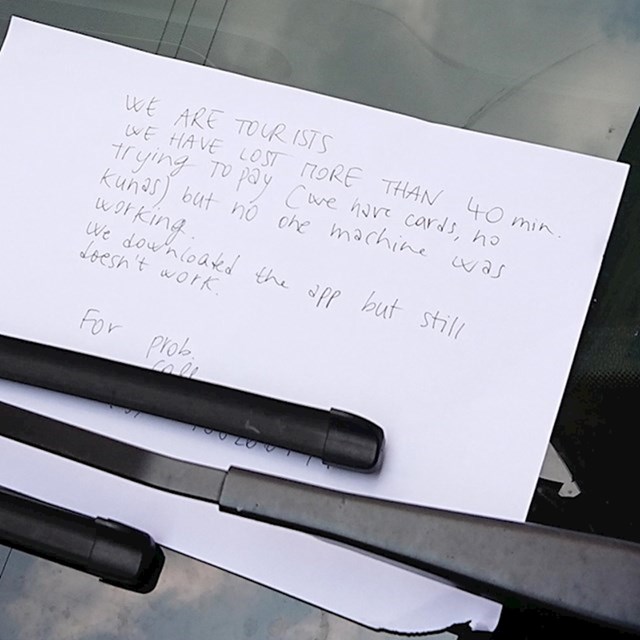 WE ARE TOURISTS
WE HAVE LOST MORE THAN 40 min.
trying TO pay (we have cards, no
kunas) but no one machine was
working.
We downloaded the app but still
doesn't work.
For prob.
call